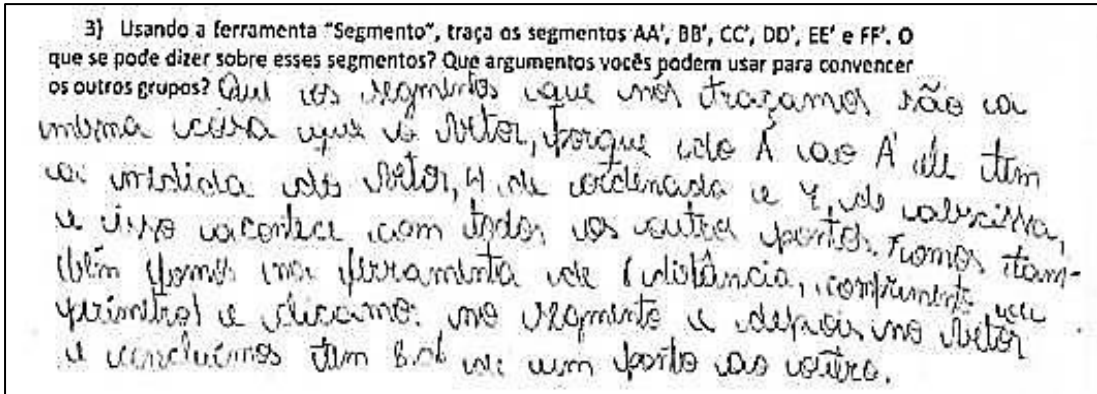 3) Usando a ferramenta "Segmento", traça os segmentos AA', BB', CC', DD', EE' e FF'. O
que se pode dizer sobre esses segmentos? Que argumentos vocês podem usar para convencer
os outros grupos? Que os segmentos que nós traçamos são a
mesma coisa que o Vetor, porque do A ao A' ele tem
a medida do Vetor, 4 de ordenada e 7 de abscissa,
e isso acontece com todos os outros pontos. Fomos tam-
bém fomos na ferramenta de (distância, comprimento ou
perímetro) e clicamos no segmento e depois no Vetor
e concluímos tem 8.06 de um ponto ao outro.